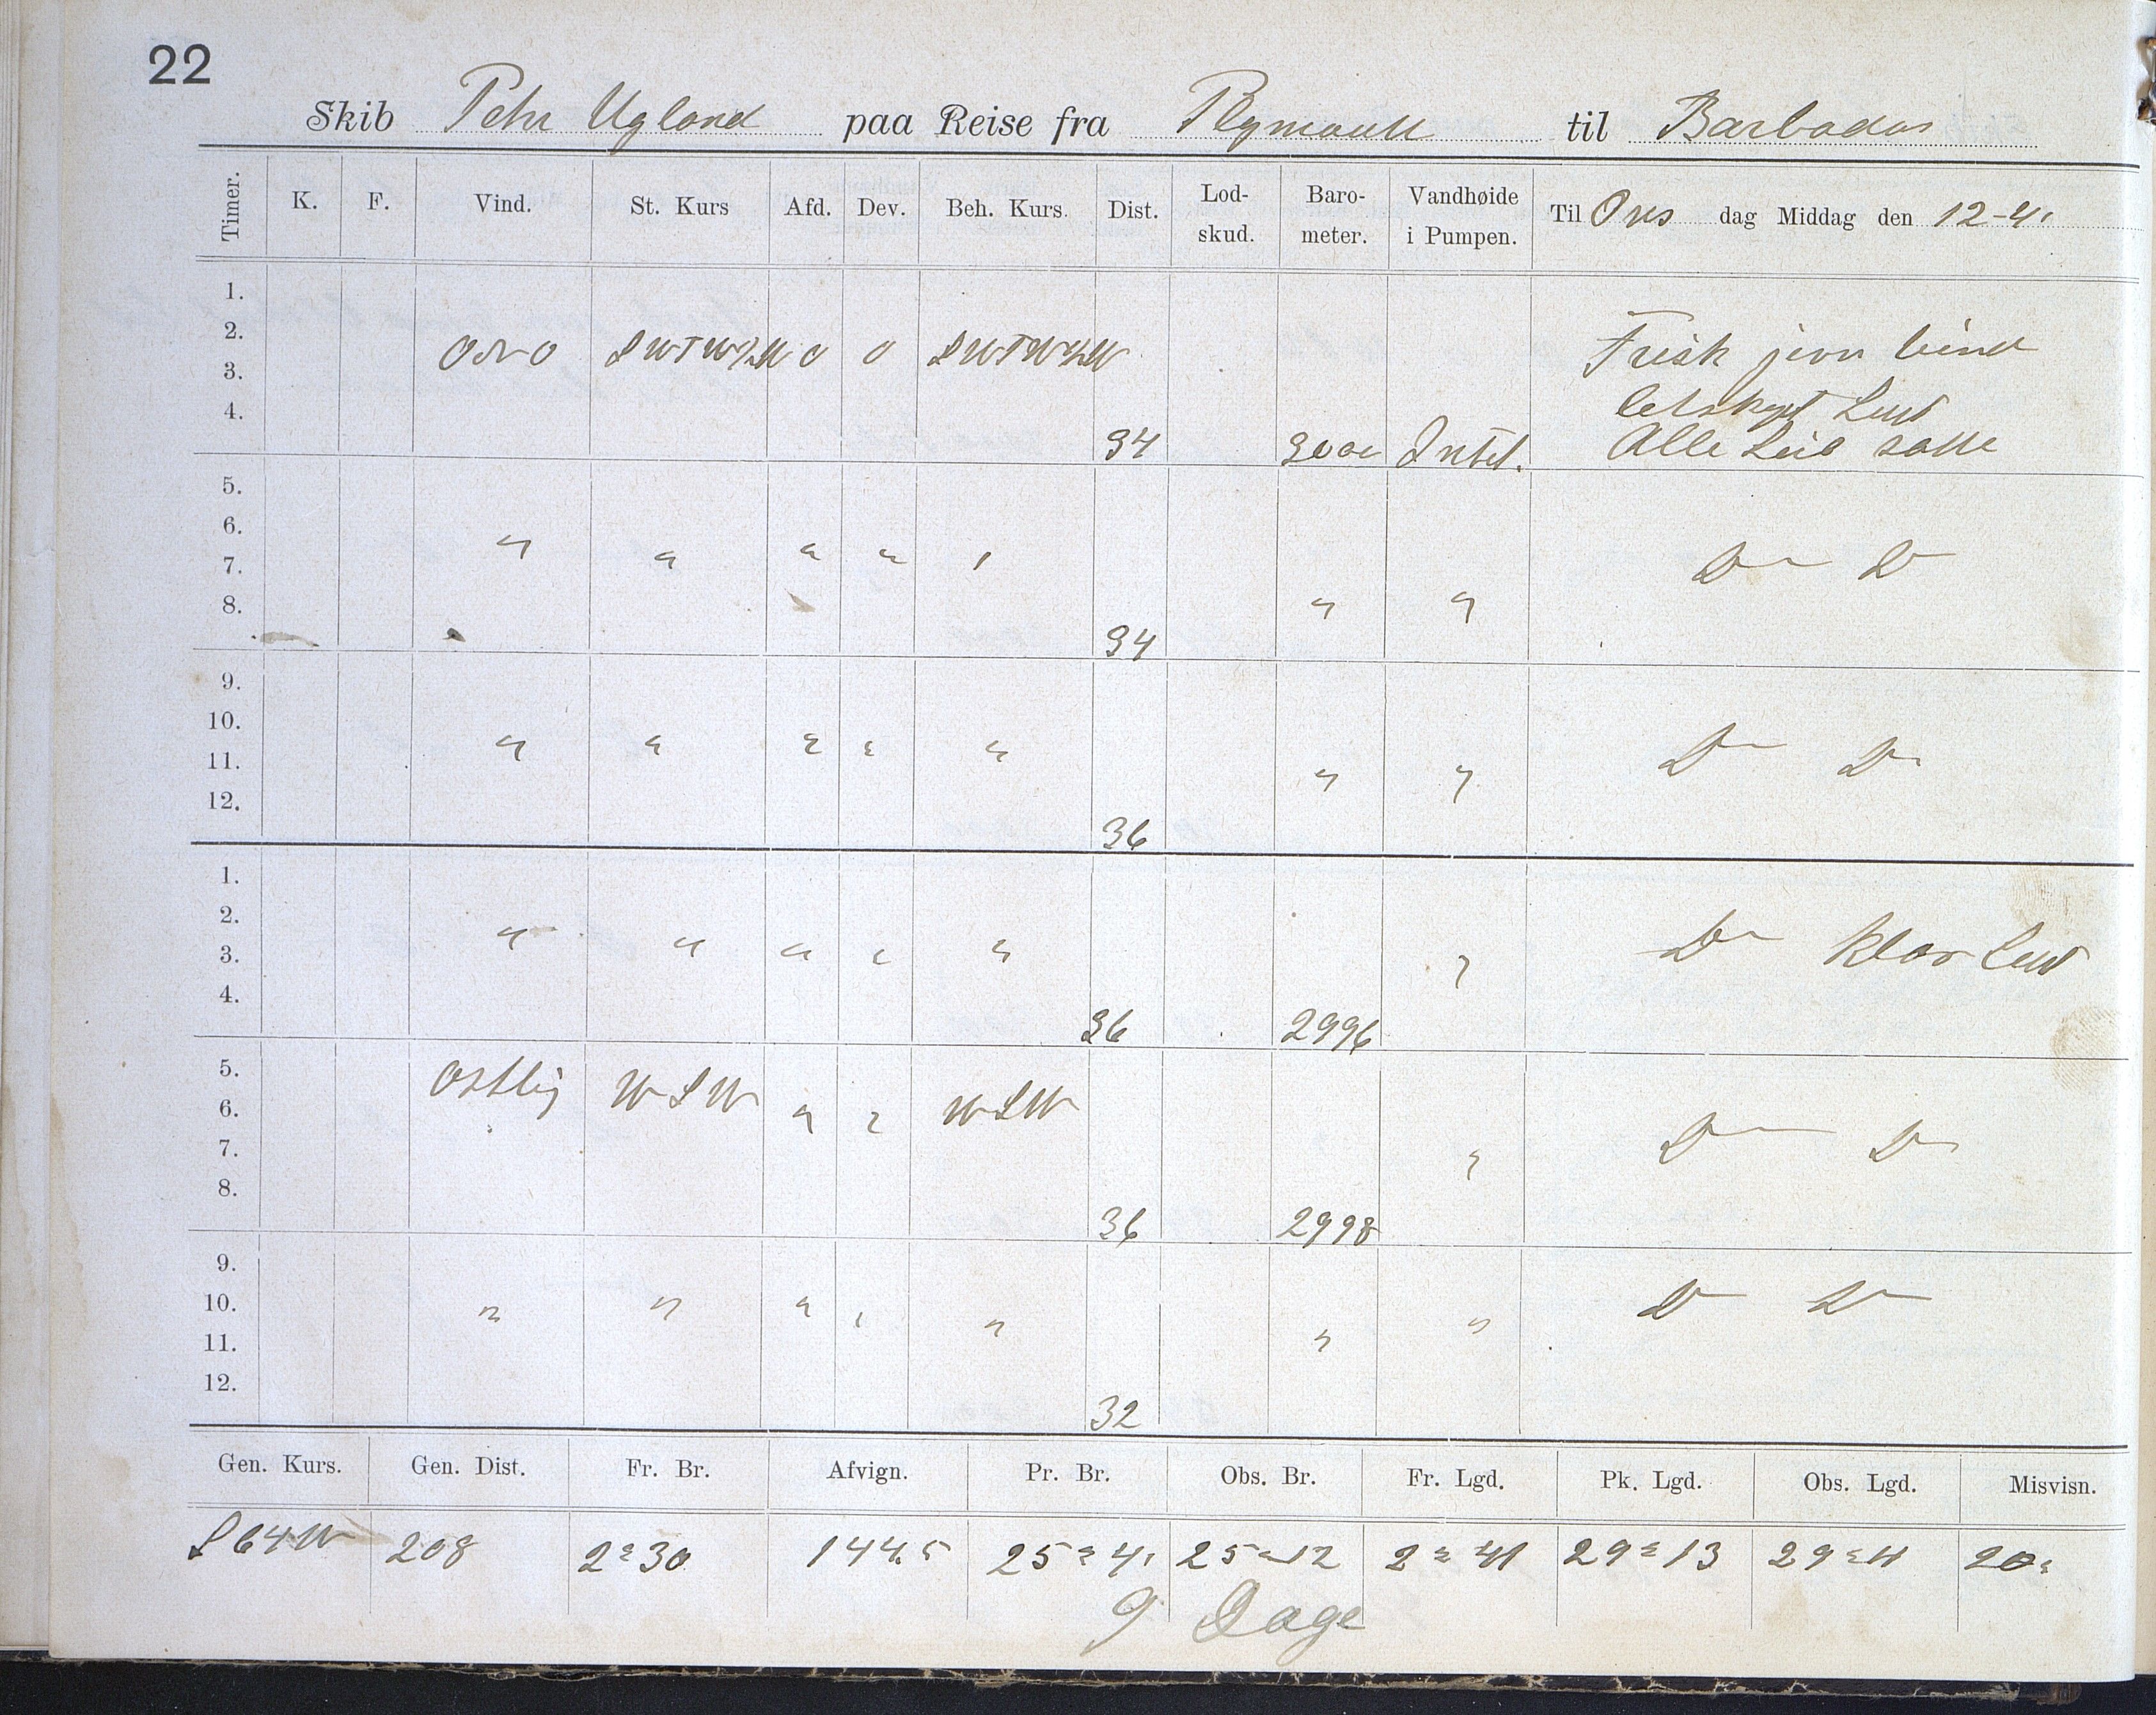 22
Skib Peter Ugland paa Reise fra Plymouth til Barbados
Timer. K. F. Vind. St. Kurs Afd. Dev. Beh. Kurs. Dist. Lod-skud. Baro-meter. Vandhøide i Pumpen. Til Ons dag Middag den 12-4.
1.
2. Frisk jevn vind
3. ONO SWTW½W 0 0 SWTW½W
4. letskyet Luft
34 3000 Intet. Alle Seil satte
5.
6. " " " " "
7. D D
8. " "
34
9.
10. " " " " "
11. D D
12. " "
36
1.
2. " " " " "
3. " D Klar Luft
4.
36 2996
5. Ostlig WSW WSW
6. " "
7. " D D
8.
36 2998
9.
10. " " " " " D D
11. " "
12.
32
Gen. Kurs. Gen. Dist. Fr. Br. Afvign. Pr. Br. Obs. Br. Fr. Lgd. Pk. Lgd. Obs. Lgd. Misvisn.
S 64 W 208 2=30 144.5 25=4. 25=12 2=41 29=13 29=11 20=
9 Dage